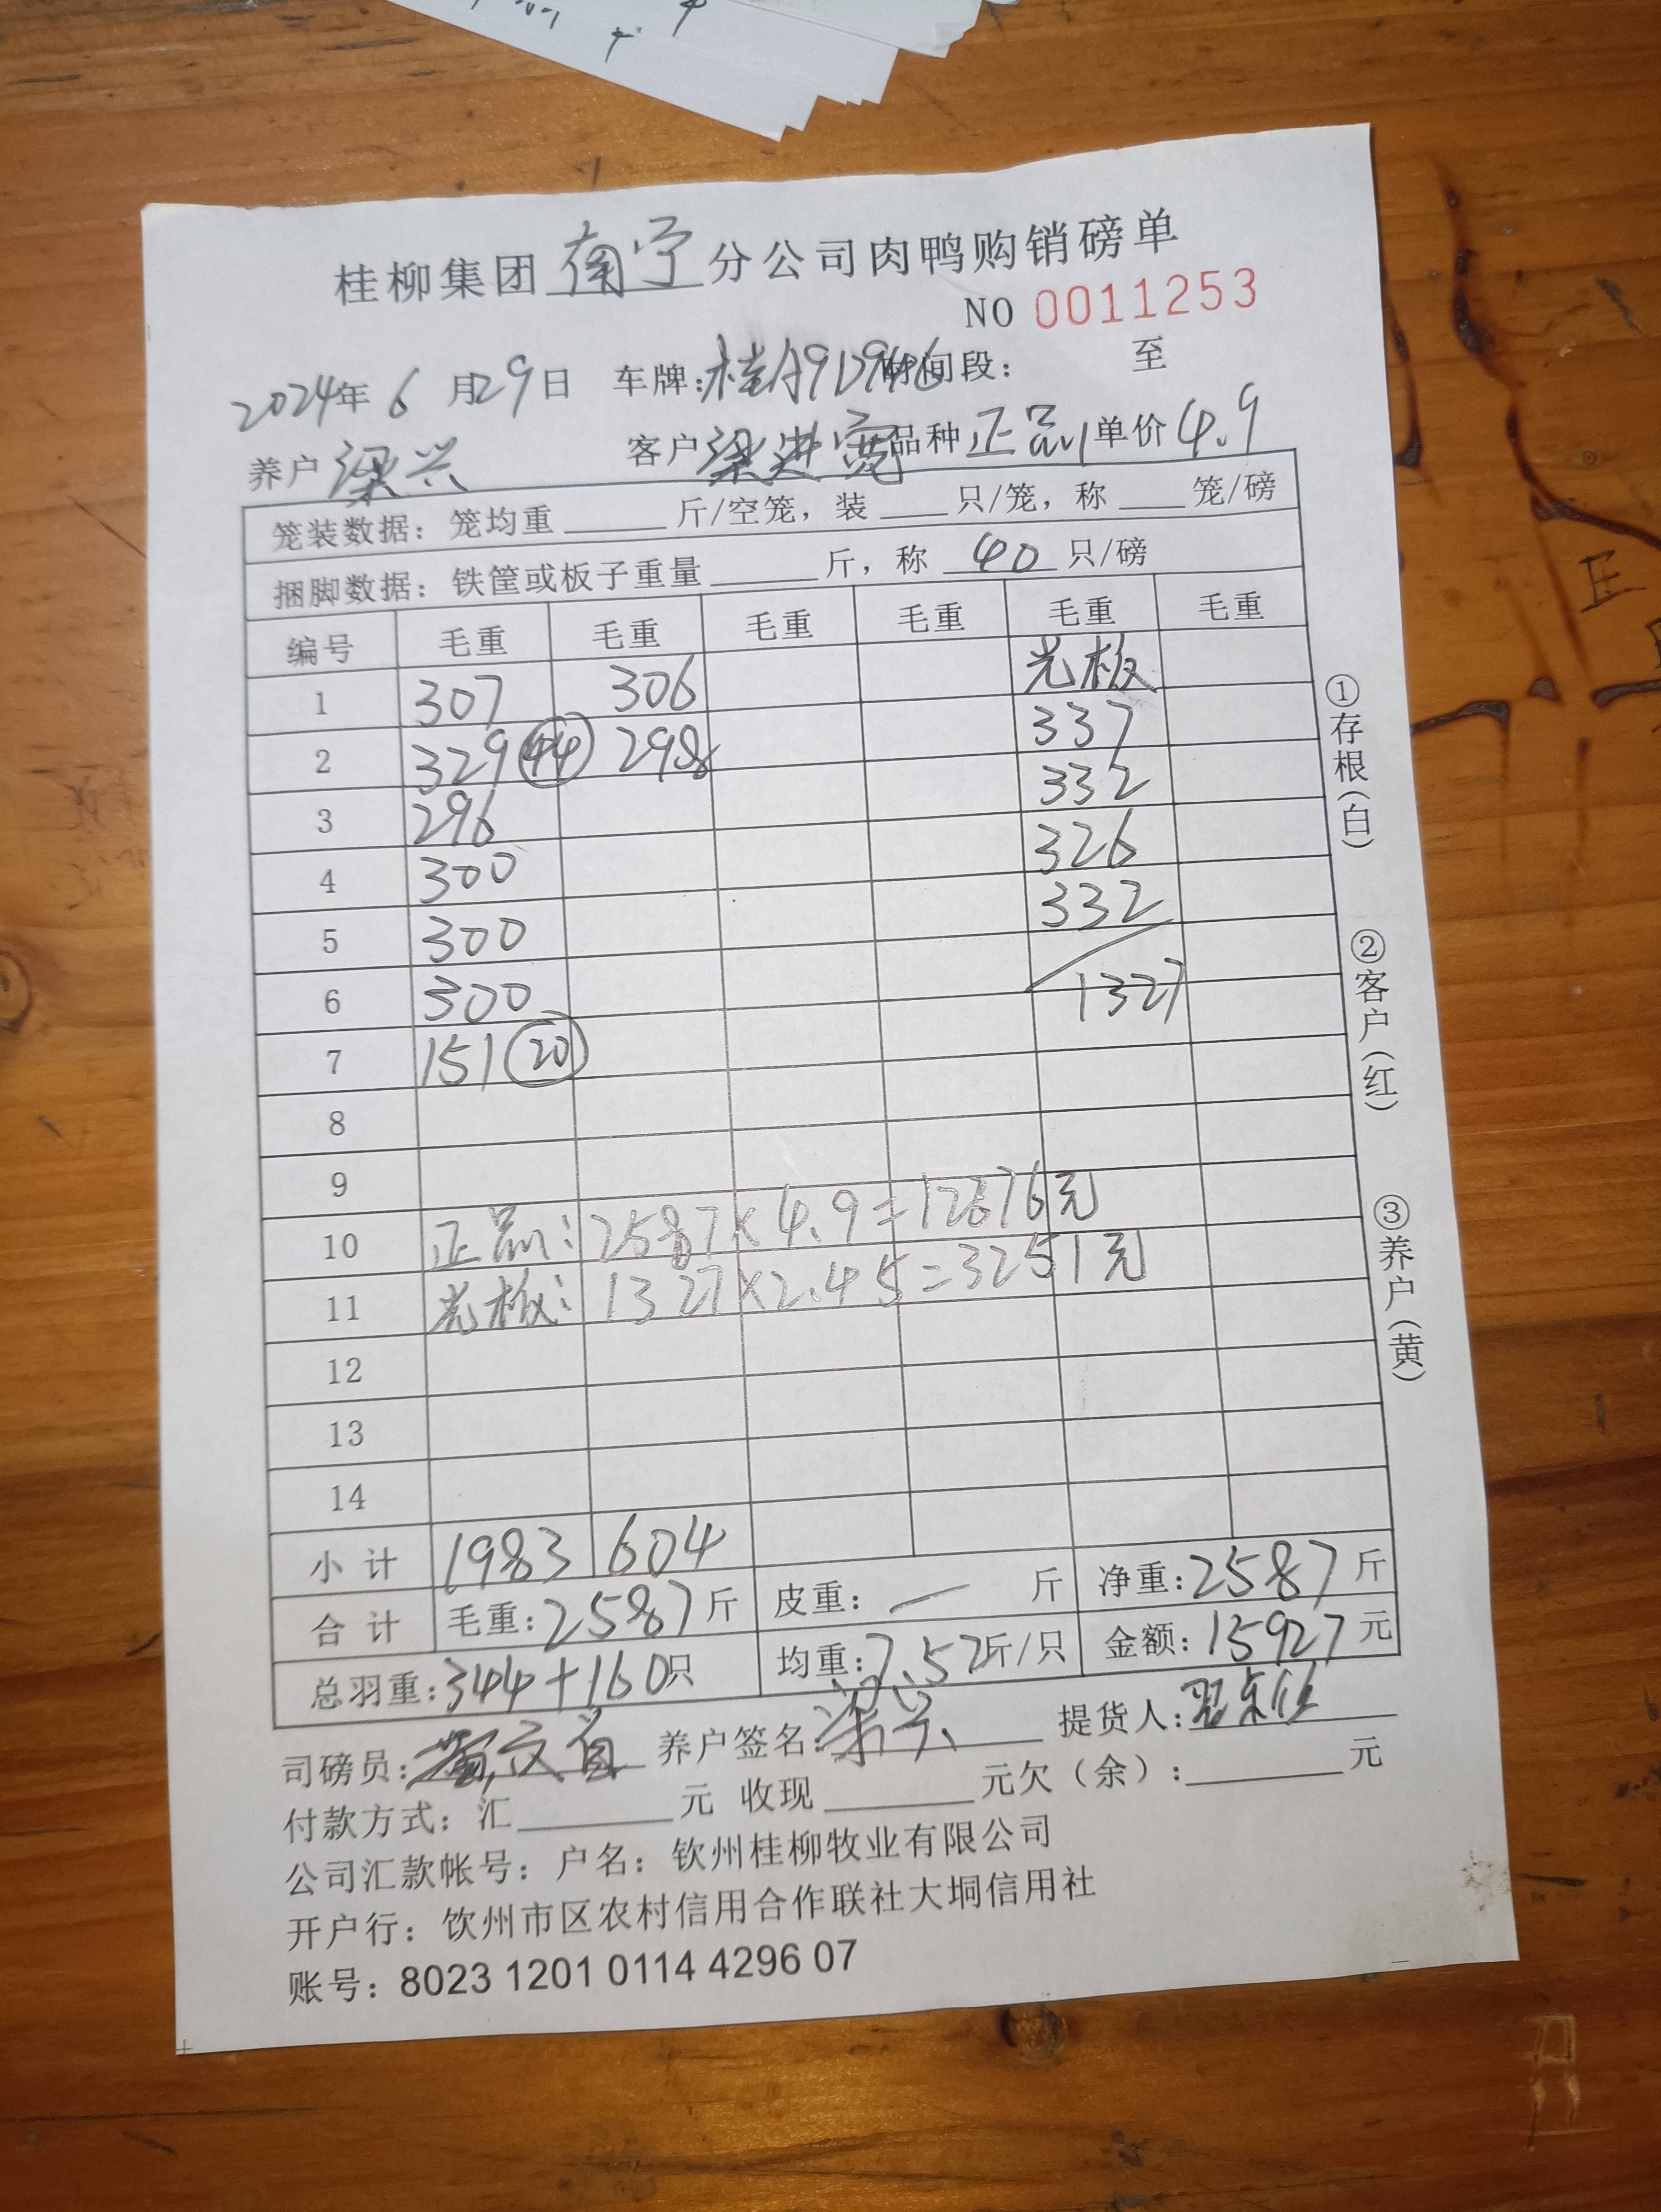 桂柳集团南宁分公司肉鸭购销磅单
NO 0011253
2024年6月29日 车牌:桂A9D946时间段: 至
养户梁兴 客户梁进宽品种正品单价4.9
笼装数据:笼均重 斤/空笼,装 只/笼,称 笼/磅
捆脚数据:铁筐或板子重量 斤,称 40 只/磅
编号 毛重 毛重 毛重 毛重 毛重 毛重
1 307 306 光板
2 329 44 298 337
3 296 332
4 300 326
5 300 332
6 300 1327
7 151 20
8
9
10 正品:2587×4.9=12676元
11 光板:1327×2.45=3251元
12
13
14
小计 1983 604
合计 毛重:2587斤 皮重:— 斤 净重:2587斤
总羽重:344+160只 均重:7.52斤/只 金额:15927元
司磅员: 养户签名:梁兴 提货人:
付款方式:汇 元 收现 元欠(余): 元
公司汇款帐号:户名:钦州桂柳牧业有限公司
开户行:钦州市区农村信用合作联社大垌信用社
账号:8023 1201 0114 4296 07
①存根(白)
②客户(红)
③养户(黄)